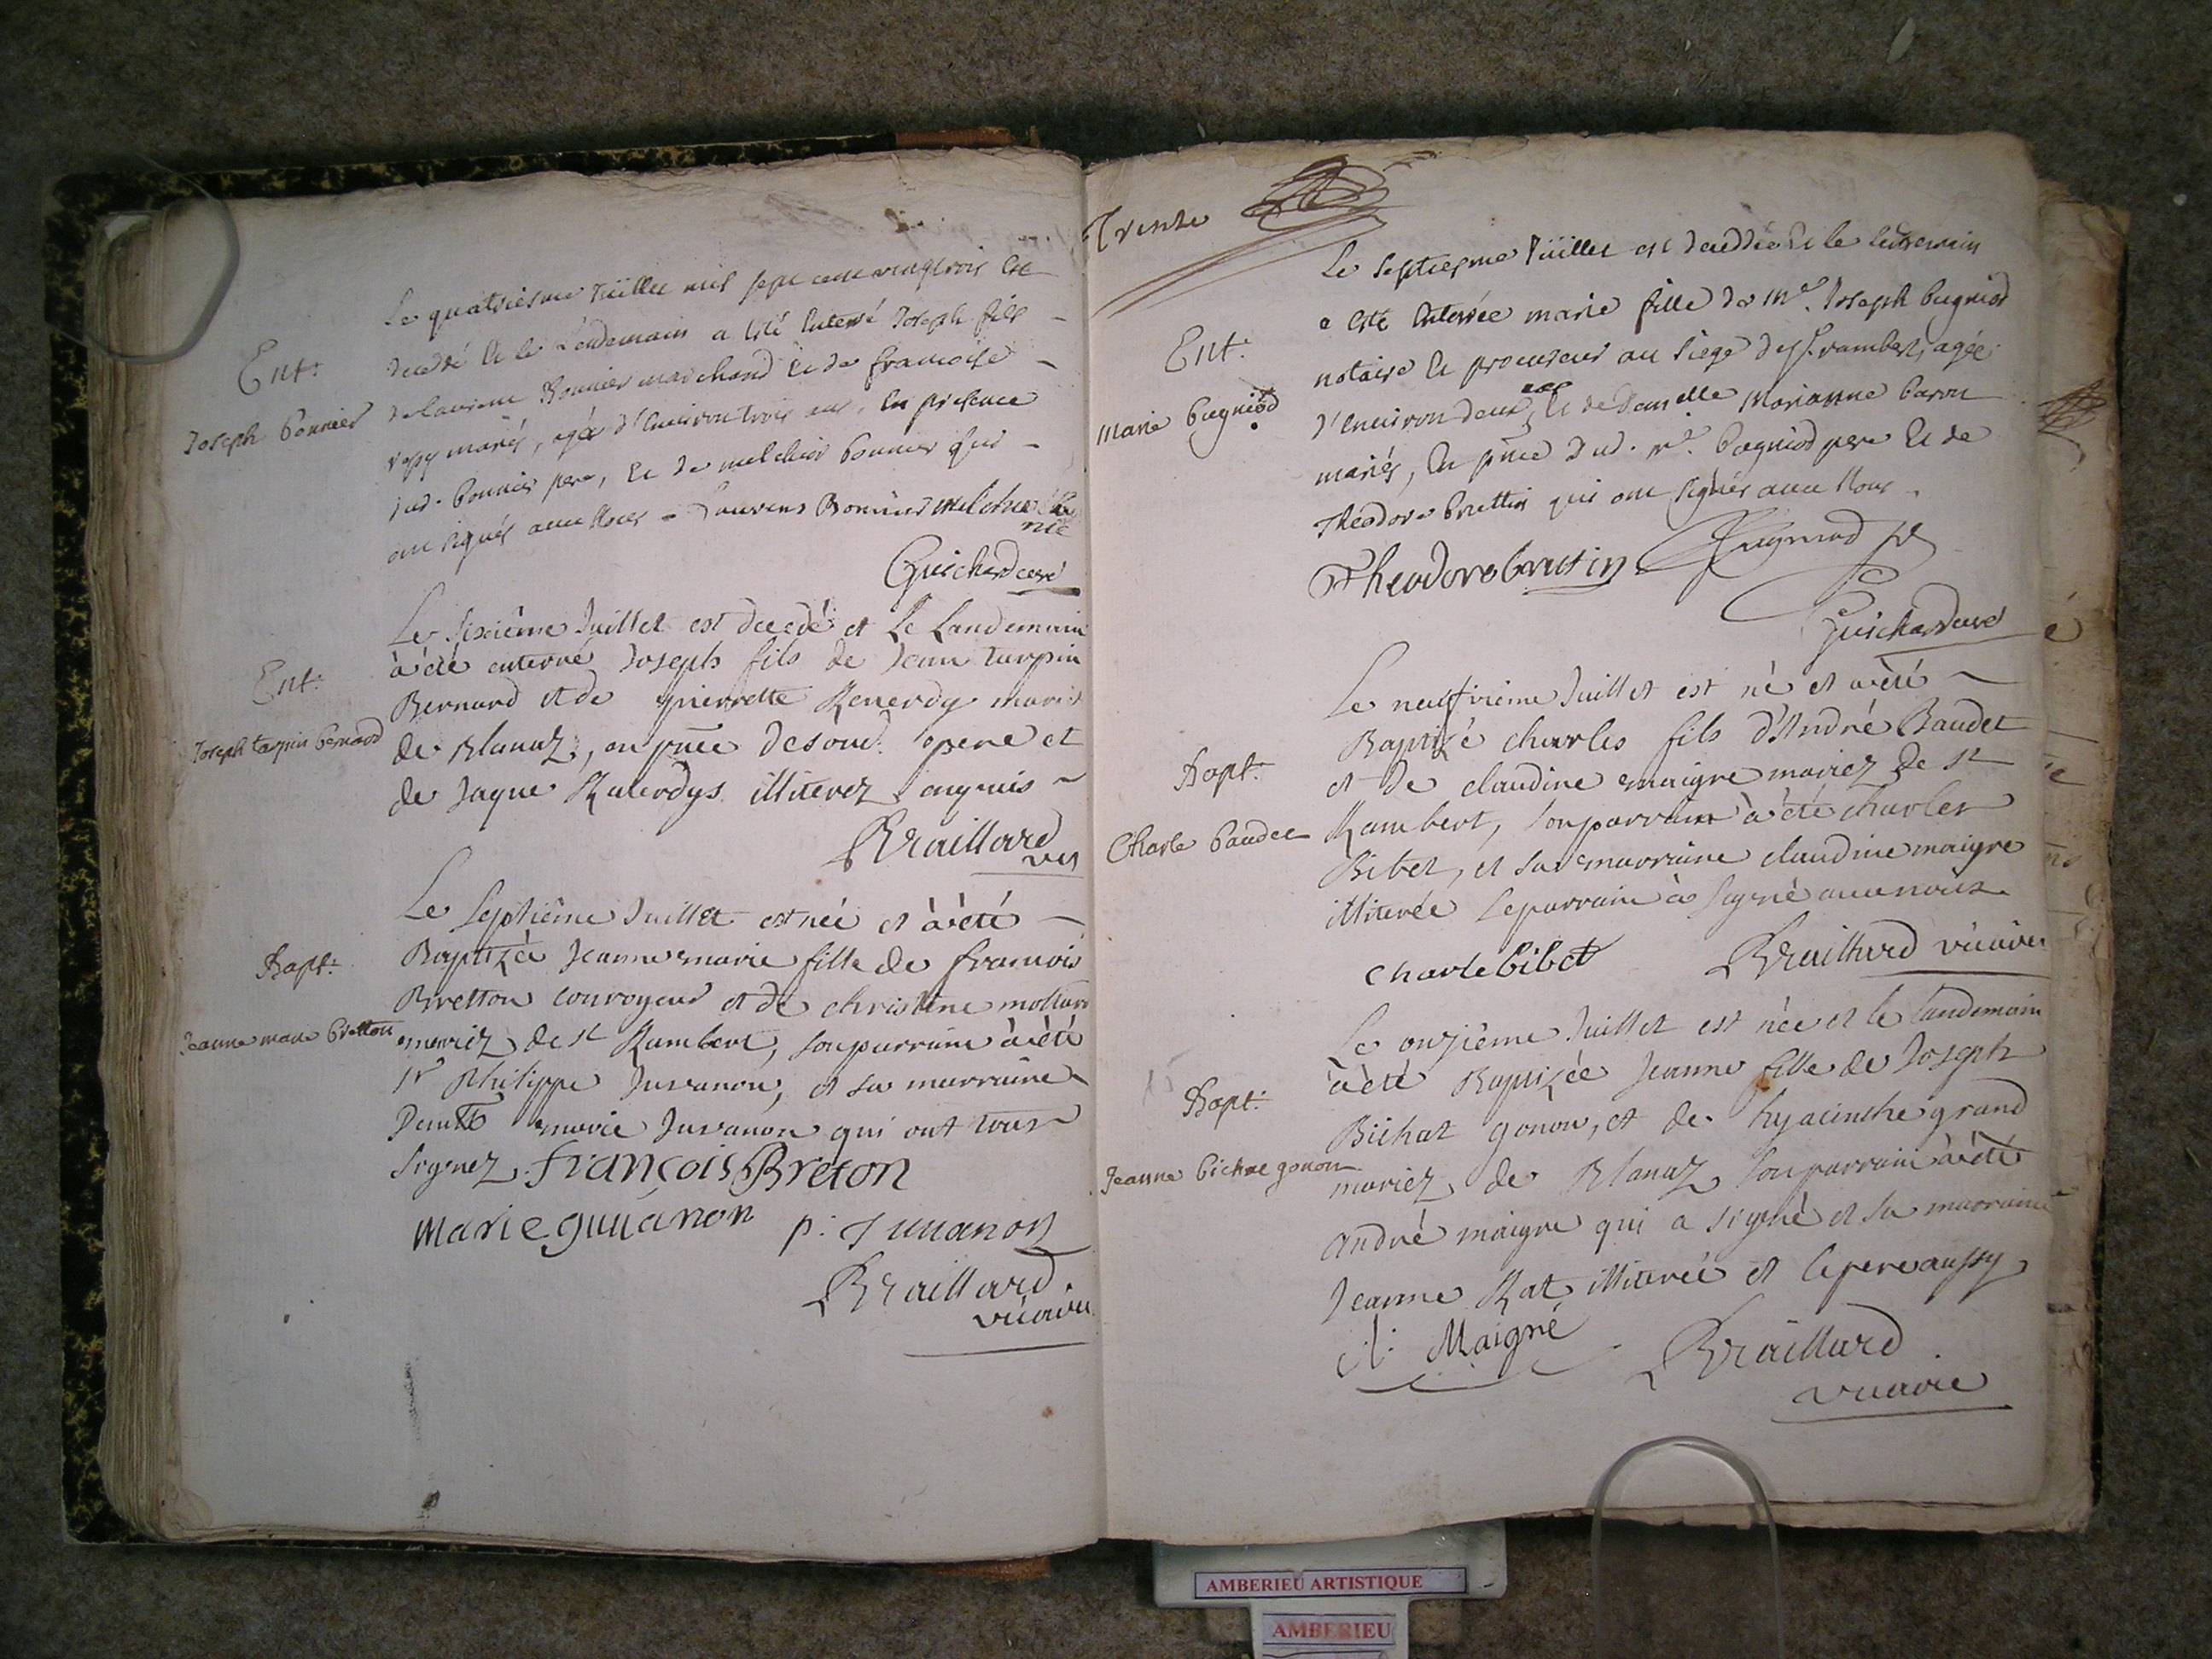 Ent.
Joseph bonnier
Le quatriesme Juillet mil sept cent vingt trois est
decedé et le Lendemain a esté Enterré Joseph fils
de laurens Bonnier marchand et de francoise
mariés, agé d'environ trois ans, En presence
dud. bonnier pere, et de melchior bonnier qui
ont signés avec Nous
Guichard curé
Ent.
Joseph turpin bernard
Le sixième Juillet est decedé et Le Landemain
à été enterré Joseph fils de Jean turpin
Bernard et de pierrette Renerdy mariés
de Blanaz, en pñce de son d. pere et
de Jaque illiterez enquis
Braillard
Bapt.
Jeanne marie bretton
Le septième Juillet est née et à été
Baptizée Jeanne marie fille de francois
Bretton convoyeur et de christine
mariez de st Rambert, son parrain à été
sr Philippe Juvanon, et sa marraine
marie Juvanon qui ont tous
signez. françois Breton
Marie guuanon p. Juuanon
Braillard
vicaire
Trente
Ent.
Marie bugniod
Le septiesme Juillet est decedée Et le lendemain
a esté Enterrée marie fille de Me. Joseph bugniod
notaire et procureur au siege de St. rambert, agée
d'environ deux ans Et de Damelle Marianne baron
mariés, En pñce dud. Me. bugniod pere Et de
Theodore bruttin qui ont signés avec Nous
Theodore brutin
Guichard curé
Bapt.
Charle baudet
Le neufvième Juillet est né et a été
Baptizé charles fils d'André Baudet
et de claudine maigre mariez de st
Rambert, son parrain à été charles
Bibet, et sa marraine claudine maigre
illiterée le parrain à signé avec nous
charle bibet Braillard vicaire
Bapt.
Jeanne bichat gonon
Le onzième Juillet est née et le landemain
à été Baptizée Jeanne fille de Joseph
Bichat gonon, et de hyacinthe grand
mariez de Blanaz son parrain à été
André maigre qui a signé et sa marraine
Jeanne Rat illiterée et le pere aussy
A. Maigre
Braillard
vicaire
AMBERIEU ARTISTIQUE
AMBERIEU